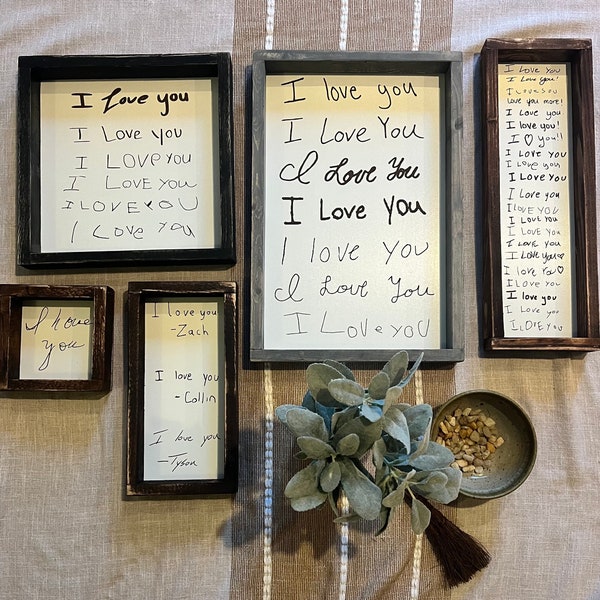 I Love you
I Love you
I LOVE YOU
I LOVE YOU
I LOVE YOU
I LOVE YOU
I love you
I Love You
I Love You
I Love You
I love you
I Love You
I Love you
I LOVE YOU
I Love you!
I LOVE YOU
Love you more!
I Love you
I love you!
I ♡ you!!
I LOVE YOU
I Love you
I LOVE YOU
I Love you
I LOVE YOU
I LOVE YOU
I LOVE YOU
I LOVE YOU
I LOVE YOU♡
I love You♡
I LOVE YOU
I love you
I Love you
I LOVE YOU
I love
you
I love you
-Zach
I love you
-Collin
I love you
-Tyson